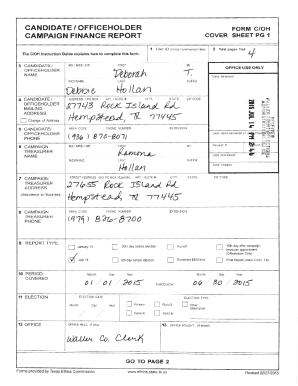 CANDIDATE / OFFICEHOLDER CAMPAIGN FINANCE REPORT
FORM C/OH
COVER SHEET PG 1
The C/OH Instruction Guide explains how to complete this form.
2 Total pages filed:
4
3 CANDIDATE / OFFICEHOLDER NAME
MS / MRS / MR FIRST MI
Deborah T.
NICKNAME LAST SUFFIX
Debbie Hollan
OFFICE USE ONLY
Date Received
4 CANDIDATE / OFFICEHOLDER MAILING ADDRESS
Change of Address
27743 Rock Island Rd
Hempstead, TX 77445
5 CANDIDATE/ OFFICEHOLDER PHONE
AREA CODE PHONE NUMBER EXTENSION
(936) 870-8071
6 CAMPAIGN TREASURER NAME
MS / MRS / MR FIRST MI
Ramona
NICKNAME LAST SUFFIX
Hollan
7 CAMPAIGN TREASURER ADDRESS
(Residence or Business)
27655 Rock Island Rd
Hempstead, TX 77445
8 CAMPAIGN TREASURER PHONE
AREA CODE PHONE NUMBER EXTENSION
(979) 826-8700
9 REPORT TYPE
January 15
30th day before election
Runoff
15th day after campaign treasurer appointment (Officeholder Only)
July 15
8th day before election
Exceeded $500 limit
10 PERIOD COVERED
Month Day Year
01 / 01 / 2015
THROUGH
Month Day Year
06 / 30 / 2015
11 ELECTION
ELECTION DATE
Month Day Year
ELECTION TYPE
Primary
Runoff
Other Description
General
Special
12 OFFICE
OFFICE HELD (if any)
Waller Co. Clerk
13 OFFICE SOUGHT (if known)
GO TO PAGE 2
Forms provided by Texas Ethics Commission
www.ethics.state.tx.us